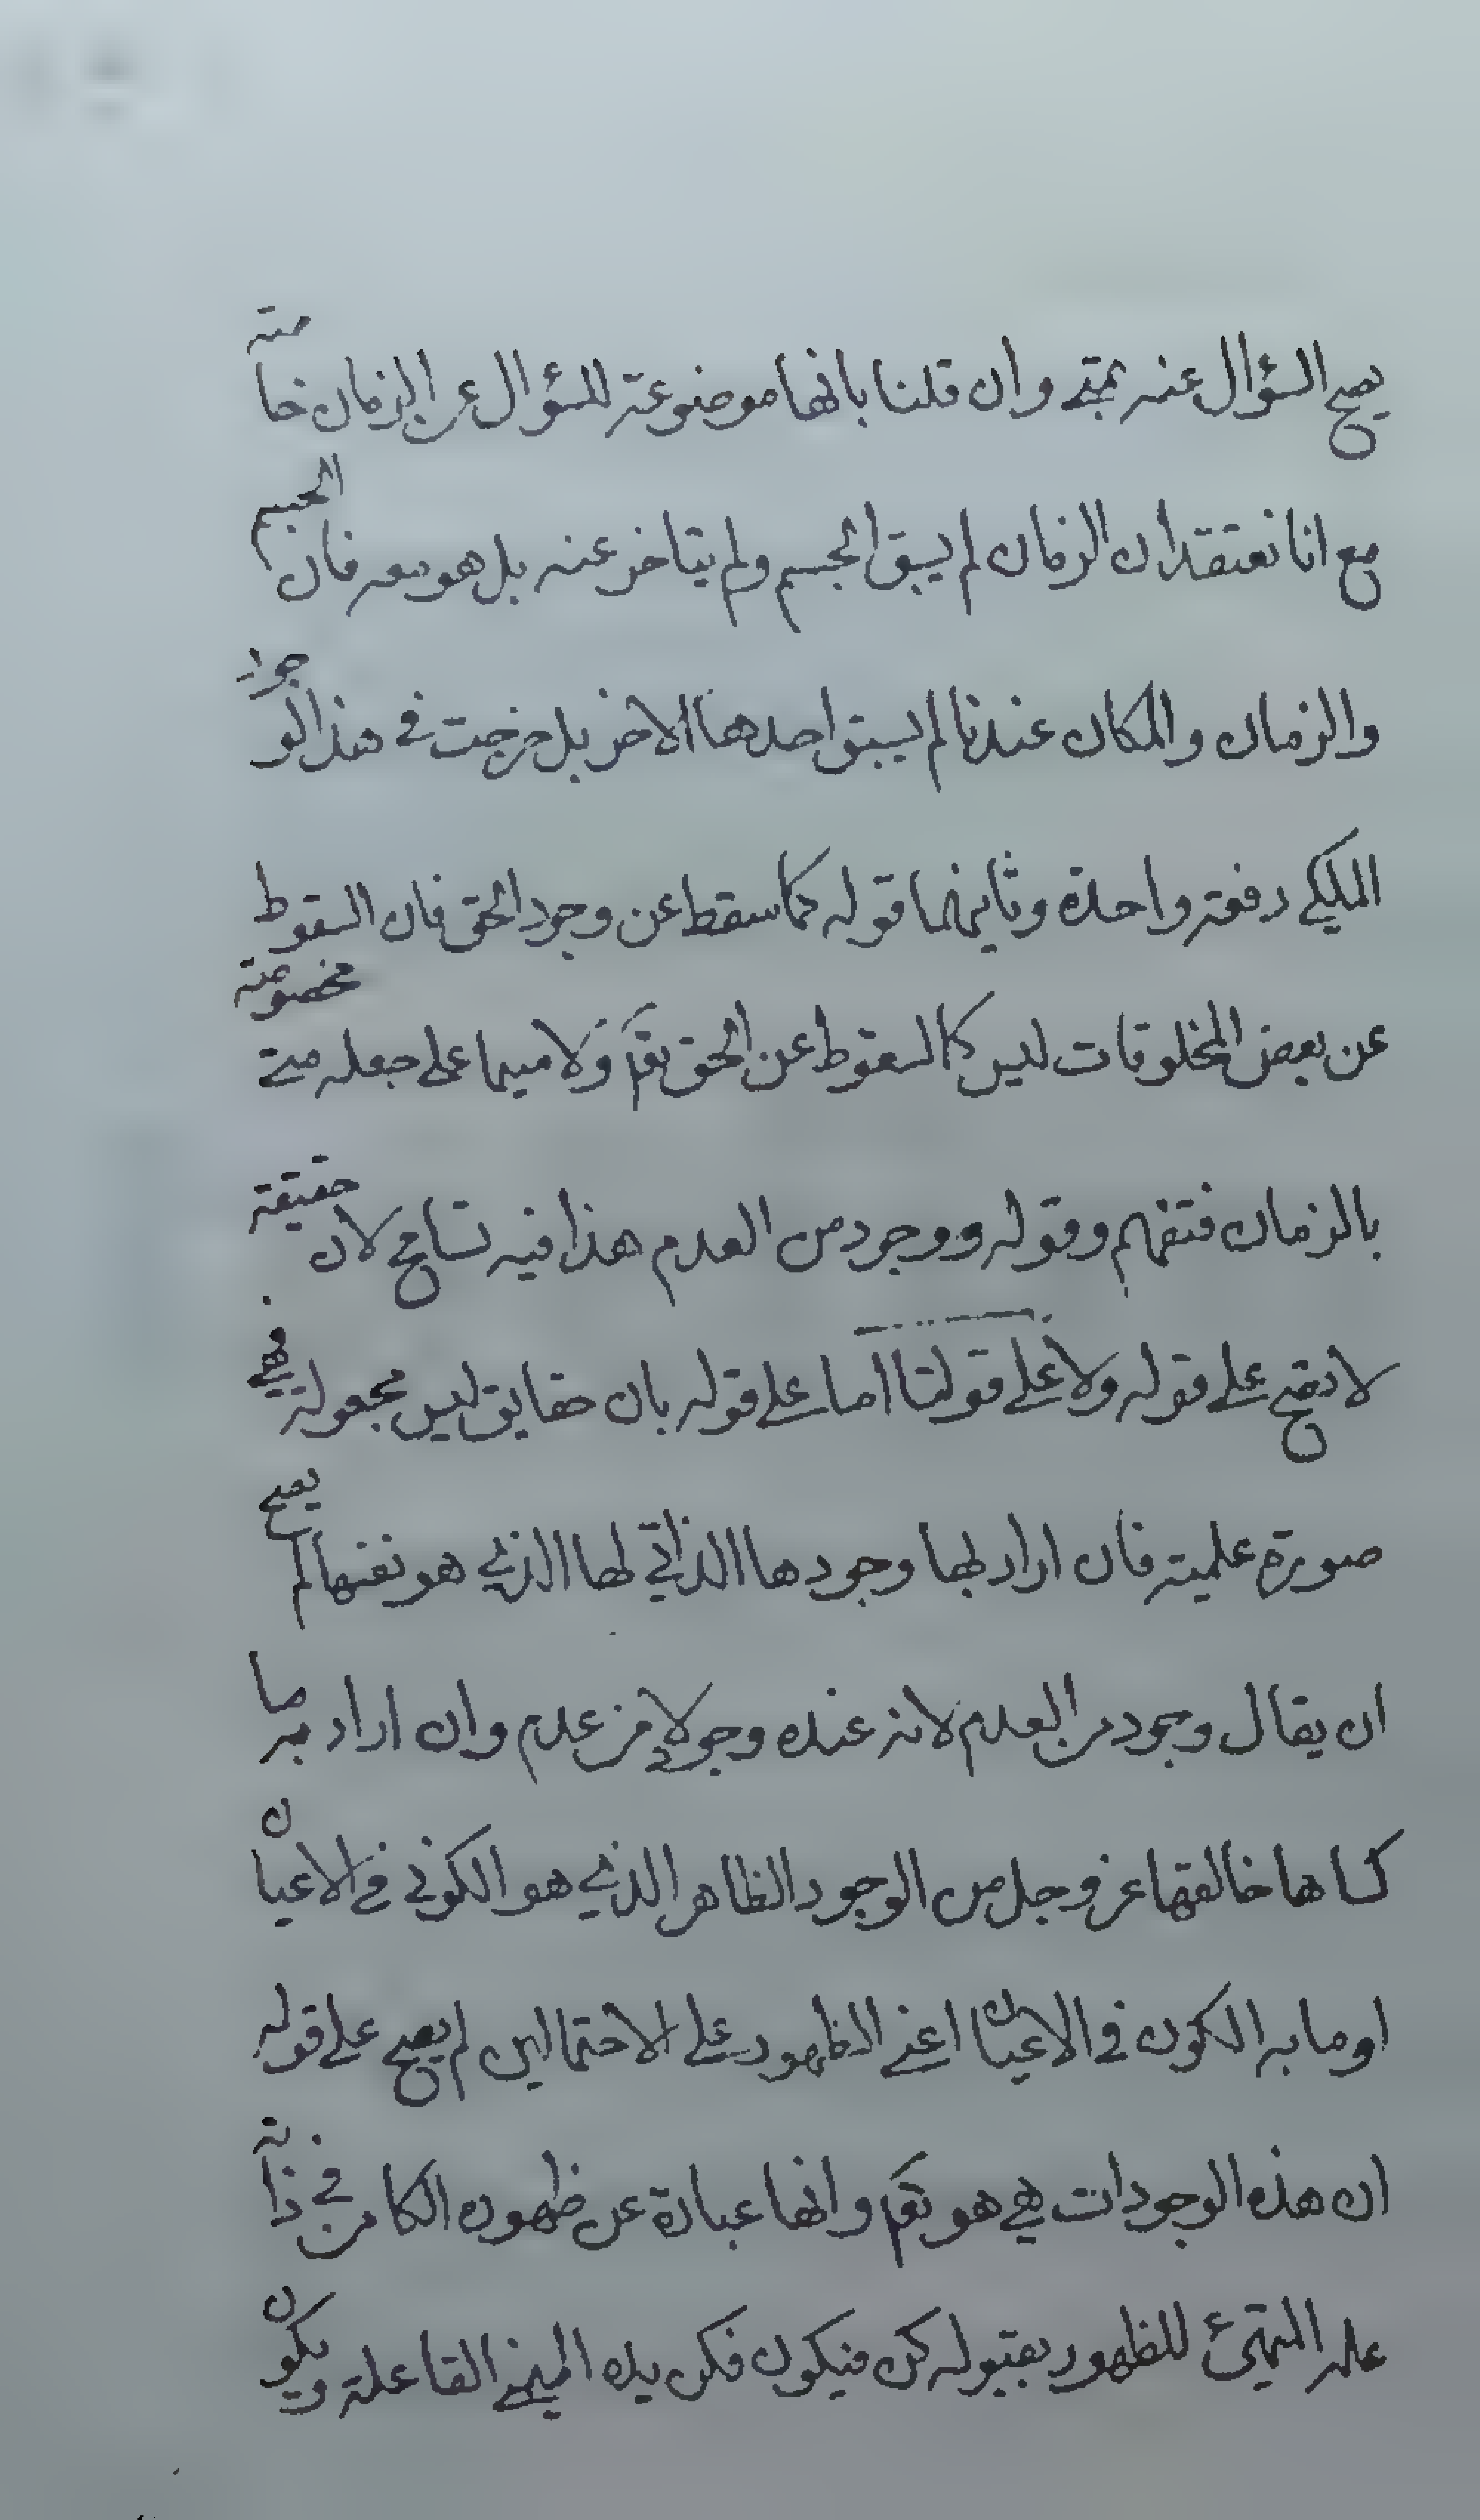 يصح السؤال عنه بمتى وان قلنا بانها موضوعة للسؤال عن الزمان خاصته
مع انا نعتقد ان الزمان لم يسبق الجسم ولم يتاخر عنه بل هو معه فان الجسم
والزمان والمكان عندنا لم يسبق احدها الاخر بل خرجت في هذا الوجود
الملكي دفعة واحدة وثانيهما قوله كما سقط عن وجود الحق فان السقوط
عن بعض المخلوقات ليس كالسقوط عن الحق تعم ولا سيما على جعله متى مخصوصة
بالزمان فتفهم وقوله ووجود من العدم هذا فيه تسامح لان حقيقة
لا تصح على قوله ولا على قولنا اما على قوله بان حقايق ليس مجعولة فهي
صورة علمية فان اراد بها وجودها الذاتي لها الذي هو نفسها لم يصح
ان يقال وجود من العدم لانه عنده وجود لا من عدم وان اراد به ما
كساها خالقها عز وجل من الوجود الظاهر الذي هو الكون في الاعيان
او ما به الكون في الاعيان اعني الظهور على الاحتمالين لم يصح على قوله
ان هذه الوجودات هي هو تعم وانها عبارة عن ظهوره الكامن في ذاته
علمه المتهيئ للظهور بقبوله كن فيكون فكن يده اليمنى الفاعلة ويكون